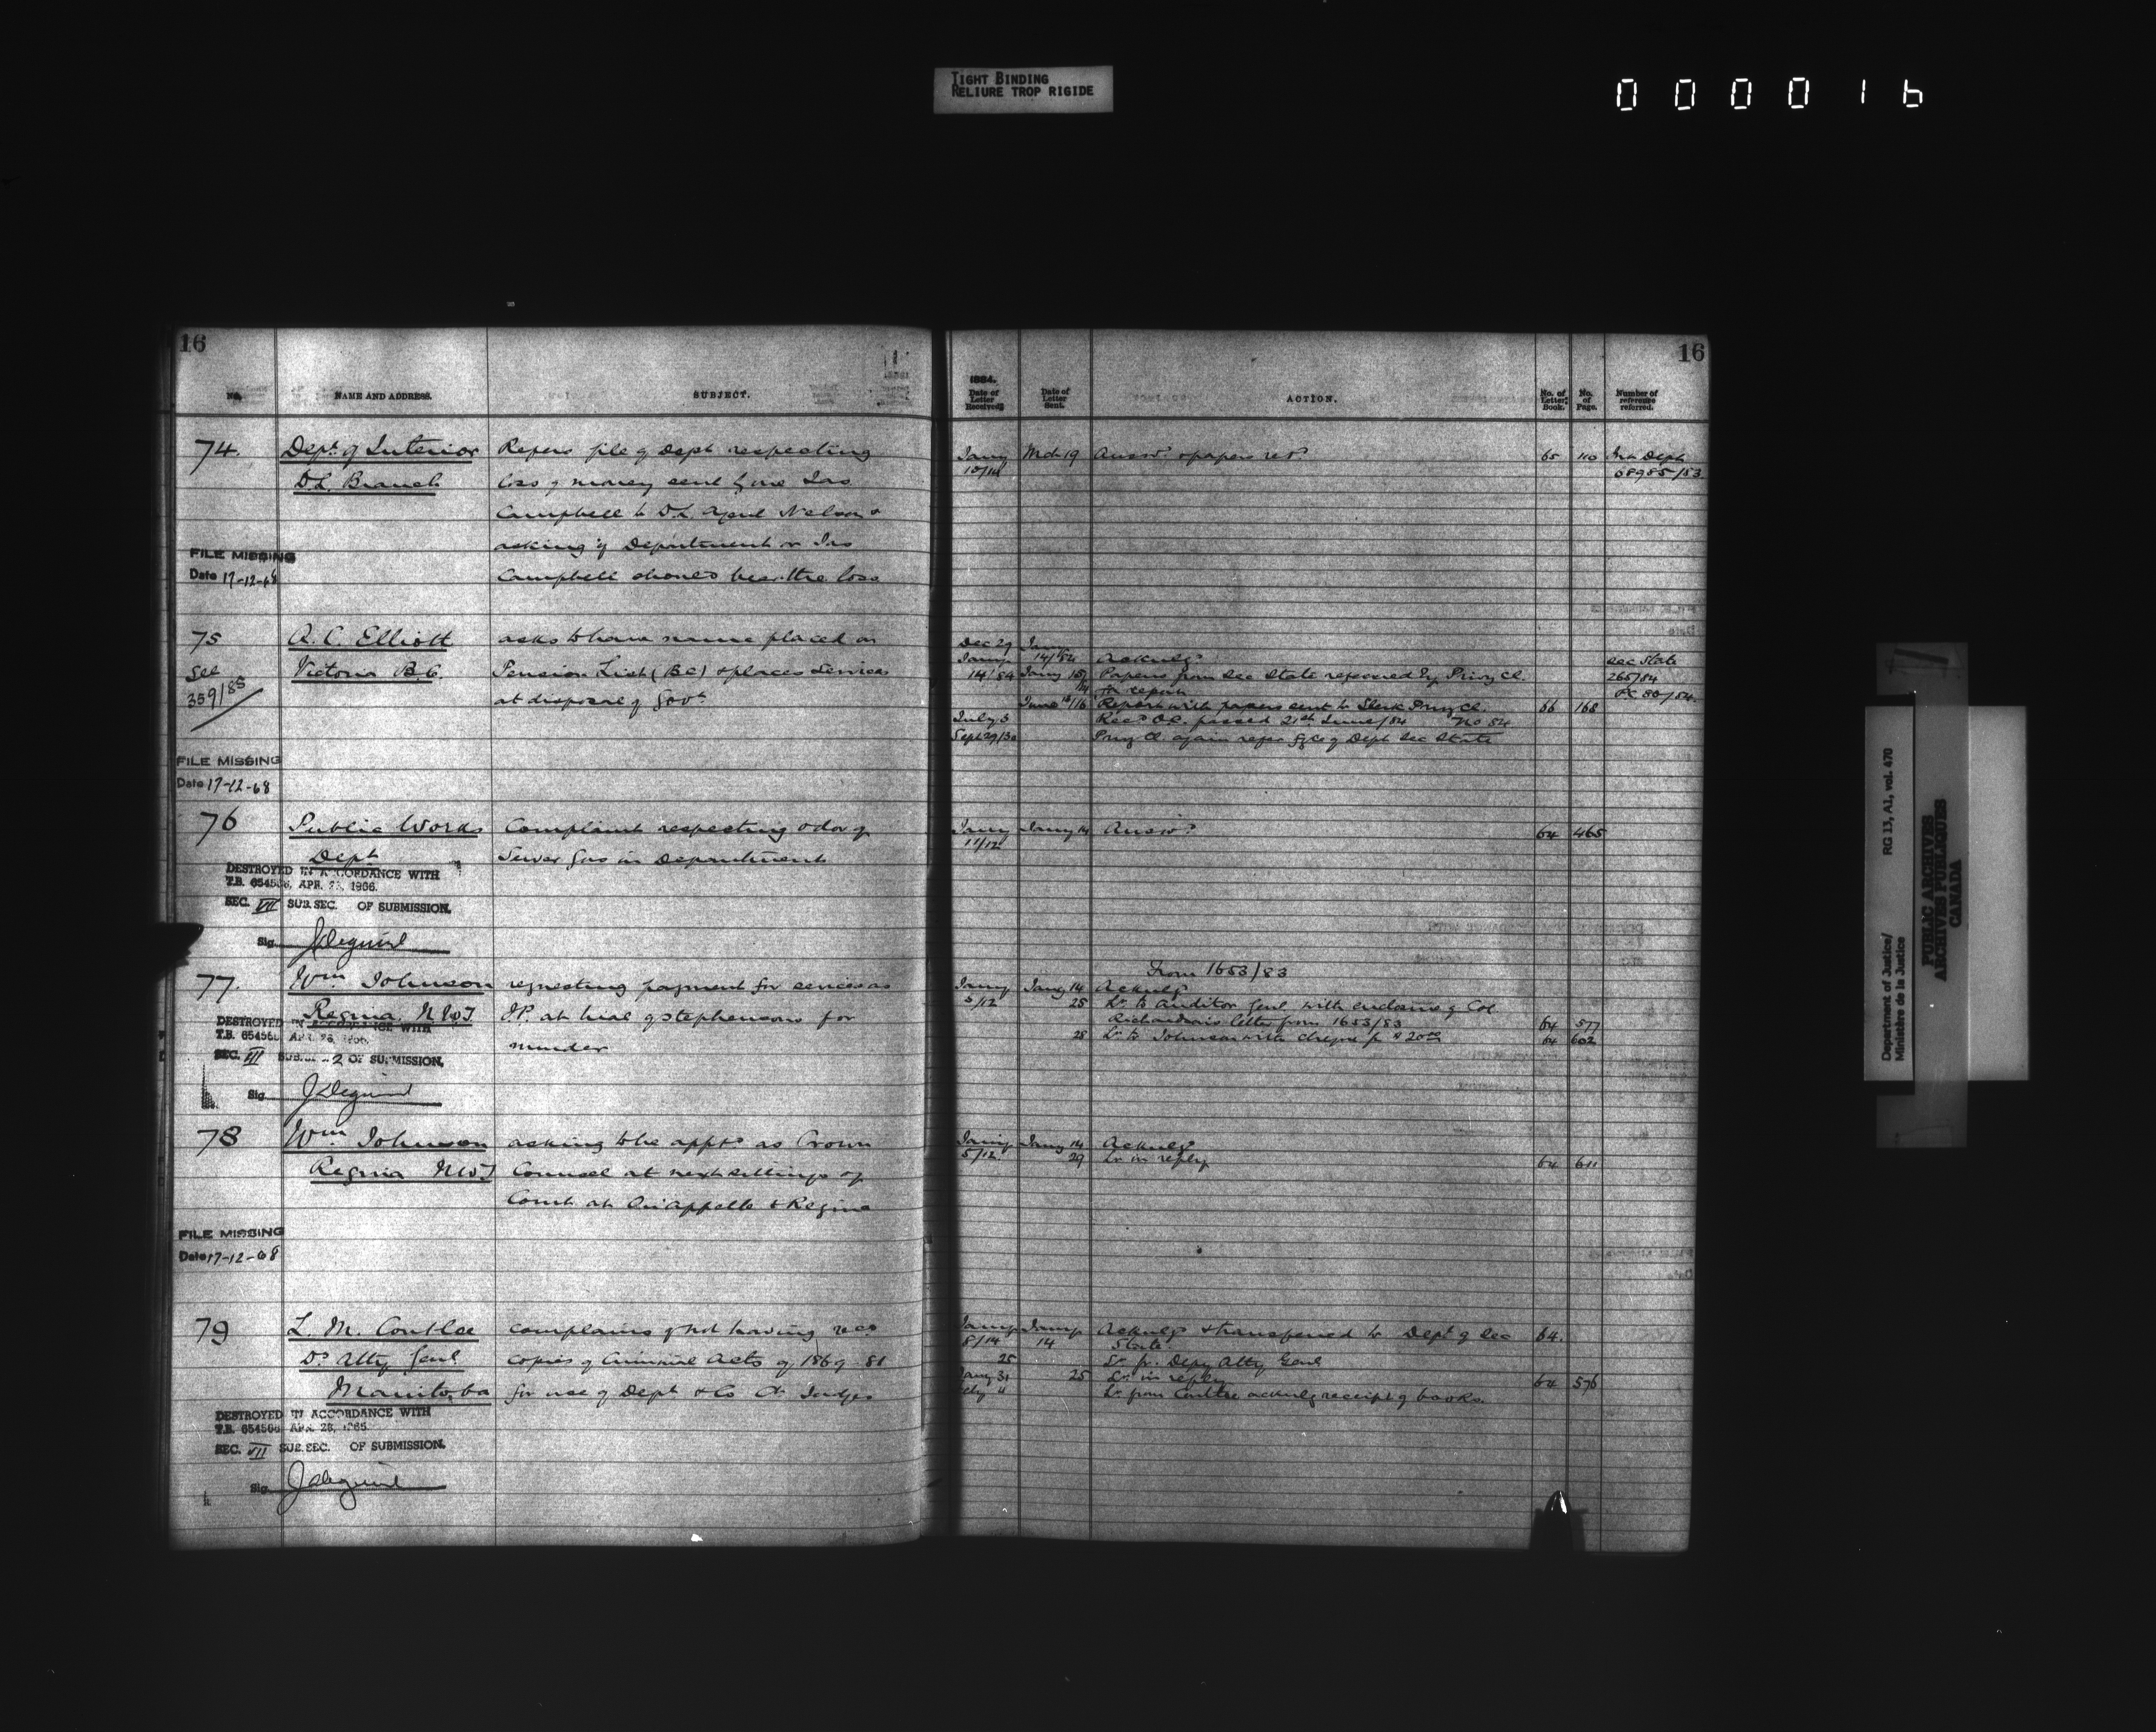 TIGHT BINDING
RELIURE TROP RIGIDE
000016
16
NO. NAME AND ADDRESS. SUBJECT.
74. Dept. of Interior Refers file of dept respecting
D.L. Branch loss of money sent by one Jas
Campbell to D.L. agent Nelson &
asking if Department or Jas
FILE MISSING
Date 17-12-68 Campbell should bear the loss
75 A. C. Elliott asks to have name placed on
See Victoria B.C. Pension List (BC) & places services
359/85 at disposal of Govt
FILE MISSING
Date 17-12-68
76 Public Works Complaint respecting odor of
Dept Sewer Gas in Department
DESTROYED IN ACCORDANCE WITH
T.B. 654568, APR. 1966.
SEC. VII SUB. SEC. OF SUBMISSION.
Sig.
77. Wm Johnson requesting payment for services as
Regina. N.W.T J.P. at trial of Stephensons for
murder
DESTROYED IN ACCORDANCE WITH
T.B. 65456 APR. 26, 1966.
SEC. VII SUB. 2 OF SUBMISSION.
Sig.
78 Wm Johnson asking to be apptd as Crown
Regina NWT Counsel at next sittings of
Court at Qu'appelle & Regina
FILE MISSING
Date 17-12-68
79 L. M. Coutlee complains of not having recd
Dy Atty Genl copies of Criminal Acts of 1869 81
Manitoba for use of Dept & Co Ct Judges
DESTROYED IN ACCORDANCE WITH
T.B. 654568 APR. 26,
SEC. VII SUB. SEC. OF SUBMISSION.
Sig.
16
1884.
Date of Letter Received. Date of Letter Sent. ACTION. No. of Letter Book. No. of Page. Number of reference referred.
Jany Mch 19 Answd & papers retd 65 110 Int Dept
10/14 68985/83
Dec 29 Jany
Jany 14/84 Acknlgd Sec State
14/84 Jany 15 Papers from Sec State referred by Privy Cl. 265/84
for report PC 80/84.
June 16 Report with papers sent to Clerk Privy Cl. 66 168
July 3 Recd O.C. passed 21st June/84 No 84
Sept 29/30 Privy Cl. again refer of Dept Sec State
Jany Jany 14 Answd 64 465
11/12
From 1653/83
Jany Jany 14 Acknlgd
5/12 25 Lr. to Auditor Genl with enclosure of Col
Richardson's letter from 1653/83 64 577
28 Lr to Johnson with cheque for $20.00 64 602
Jany Jany 14 Acknlgd
5/12. 29 Lr in reply 64 611
Jany Jany Acknlgd & transferred to Dept of Sec 64.
8/14 14 State
25 Lr. fr. Depy Atty Genl
Jany 31 25 Lr in reply 64 576
Feby 11 Lr from Coutlee acknlg receipt of books.
Department of Justice/
Ministère de la Justice
RG 13, A1, vol. 470
PUBLIC ARCHIVES
ARCHIVES PUBLIQUES
CANADA